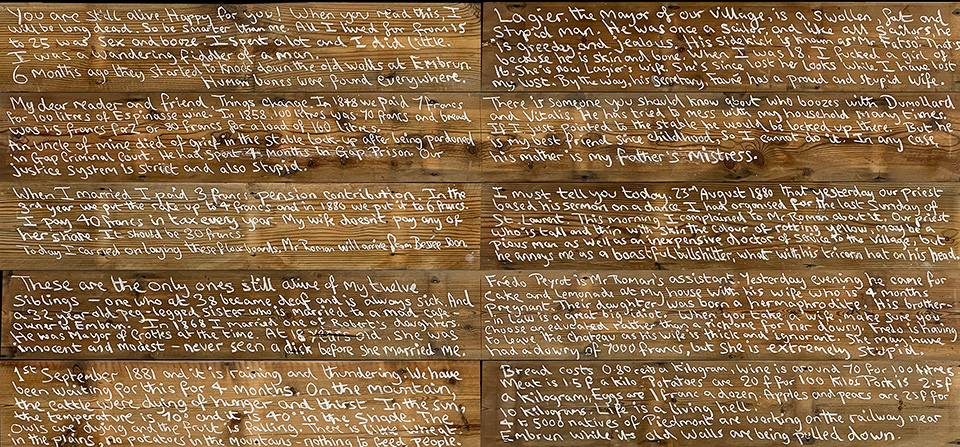 You are still alive. Happy for you! When you read this, I
will be long dead. So be smarter than me. All I lived for from 15
to 25 was sex and booze. I spent a lot and I did little.
I was a wandering fiddler of a man.
6 months ago they started to knock down the old walls at Embrun.
Human bones were found everywhere.
My dear reader and friend. Things change. In 1848 we paid 7 francs
for 100 litres of Espinasse wine. In 1858 100 litres was 70 francs and bread
was 1.5 francs for 2 or 80 francs for a load of 160 litres.
An uncle of mine died of grief in the stable lock-up after being pardoned
in Gap Criminal Court. He had spent 4 months in Gap Prison. Our
justice system is strict and also stupid.
When I married I paid 3 francs pension contribution. In the
3rd year we put the rate up to 4 francs and in 1880 we put it to 6 francs
I pay 40 francs in tax every year. My wife doesn't pay any of
her share. It should be 30 francs.
Today I carried on laying these floorboards, Mr Roman will arrive from Bessée soon
These are the only ones still alive of my twelve
siblings – one who at 38 became deaf and is always sick. And
a 32 year old peg-legged sister who is married to a mad café
owner in Embrun. In 1868 I married one of Robert's daughters.
He was Mayor of Crottes at the time. At 18 years old, she was
innocent and modest – never seen a dick before she married me.
1st September 1881 and it is raining and thundering. We have
been waiting for this for 4 months. On the mountain
the cattle are dying of hunger and thirst. In the sun,
the temperature is 40° and it is in the shade. The
owls are dying and the fruit is falling. There is little wheat
in the plains, no potatoes in the mountains – nothing to feed people.
Lagier, the mayor of our village, is a swollen, fat and
stupid man. He was once a sailor, and like all sailors he
is greedy and jealous. His sidekick is known as Mr Fatso. That's
because he is skin and bone. I am 38. I fucked her when I was
16. She is called Lagier's wife. She's since lost her looks while I have lost
my lust. By the way, his secretary, Faure has a proud and stupid wife.
There is someone you should know about who boozes with Dumollard
and Vitalis. He has tried to mess with my household many times.
If I just pointed to the stable he would be locked up there. But he
is my best friend since childhood, so I cannot do it. In any case,
his mother is my father's mistress.
I must tell you today, 23rd August 1880 that yesterday our priest
based his sermon on a dance I had organised for the last Sunday of
St. Laurent. This morning I complained to Mr Roman about it. Our priest
who is tall and thin with skin the colour of rotting yellow may be a
pious man as well as an inexpensive doctor of service to the village, but
he annoys me as a boastful bullshitter, what with his tricorn hat on his head.
Fredo Peyrot is Mr Roman's assistant. Yesterday evening he came for
cake and lemonade at my house with his wife who is 4 months
pregnant. Their daughter was born a hermaphrodite and his brother
Louis is a great big idiot – when you take a wife make sure you
choose an educated rather than a rich one, for her dowry. Fredo is having
to leave the chateau as his wife is thick and ignorant. She may have
had a dowry of 7000 francs, but she is extremely stupid.
Bread costs 0.80 cents a kilogram. Wine is around 70 for 100 litres
Meat is 1.5f a kilo. Potatoes are 20f for 100 kilos. Pork is 2.5f
a kilogram, Eggs are 1 franc a dozen. Apples and pears are 25f for
10 kilograms. Life is a living hell.
4 to 5000 natives of Piedmont are working on the railway near
Embrun while its old walls are being pulled down.